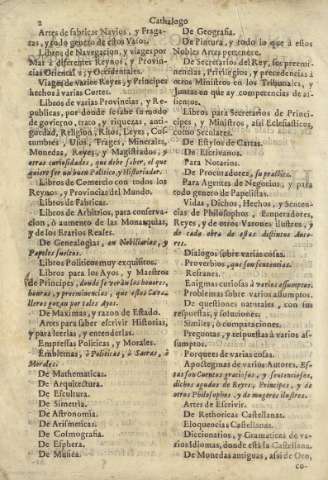 2 Cathalogo
Artes de fabricar Navios, y Fraga-
tas, y todo genero de estos Vasos.
Libros de Navegacion, y viages por
Mar à diferentes Reynos, y Provin-
cias Oriental es, y Occidentales.
Viages de varios Reyes, y Principes
hechos à varias Cortes.
Libros de varias Provincias, y Re-
publicas, por donde se sabe su modo
de govierno, trato, y riquezas, anti-
guedad, Religion, Ritos, Leyes, Cos-
tumbres, Usos, Trages, Minerales,
Monedas, Reyes, y Magistrados, y
otras curiosidades, que debe saber, el que
quiere ser un buen Politico, y Historiador.
Libros de Comercio con todos los
Reynos, y Provincias del Mundo.
Libros de Fabricas.
Libros de Arbitrios, para conserva-
cion, ò aumento de las Monarquias,
y de los Erarios Reales.
De Genealogias, en Nobiliarios, y
Papeles sueltos.
Libros Politicos muy exquisitos.
Libros para los Ayos, y Maestros
de Principes, donde se verán los honores,
honras, y preeminencias, que estos Cava-
lleros gozan por tales Ayos.
De Maximas, y razon de Estado.
Artes para saber escrivir Historias,
y para leerlas, y entenderlas.
Empressas Politicas, y Morales.
Emblemas, ò Politicas, ò Sacras, ò
Morales.
De Mathematicas.
De Arquitectura.
De Escultura.
De Simetria.
De Astronomia.
De Arismeticas.
De Cosmografia.
De Esphera.
De Musica.
De Geografia.
De Pintura, y todo lo que à estos
Nobles Artes pertenece.
De Secretarios del Rey, sus preemi-
nencias, Privilegios, y precedencias à
otros Ministros en los Tribunales, y
Juntas en que ay competencias de as-
sientos.
Libros, para Secretarios de Princi-
cipes, y Ministros, assi Eclesiasticos,
como Seculares.
De Estylos de Cartas.
De Escrivanos.
Para Notarios.
De Procuradores, su practica.
Para Agentes de Negocios, y para
todo genero de Papelistas.
Vidas, Dichos, Hechos, y Senten-
cias de Philosophos, Emperadores,
Reyes, y de otros Varones ilustres, y
de cada obra de estas distintos Auto-
res.
Dialogos sobre varias cosas.
Proverbios, que son sentencias.
Refranes.
Enigmas curiosas à varios assumptos.
Problemas sobre varios assumptos.
De questiones naturales, con sus
respuestas, y soluciones.
Similes, ò comparaciones.
Preguntas, y respuestas à varios as-
sumptos.
Porques de varias cosas.
Apostegmas de varios Autores. Es-
tas son Cuentos graciosos, y sentenciosos,
dichos agudos de Reyes, Principes, y de
otros Philosophos, y de mugeres ilustres.
Artes de Escrivir.
De Rethoricas Castellanas.
Eloquencias Castellanas.
Diccionarios, y Gramaticas de va-
rios Idiomas, donde està la Castellana.
De Monedas antiguas, assi de Oro,
co-